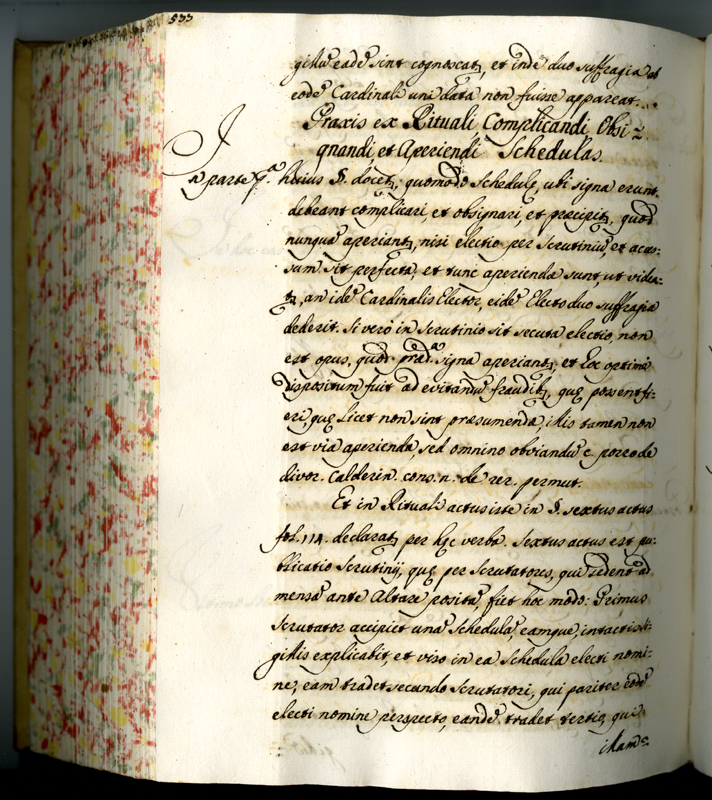 533
gillū eadē sint cognoscatr, et inde duo suffragia ab
eodē Cardinali una data non fuisse appareat.
Praxis ex Rituali Complicandi Obsi=
gnandi, et Aperiendi Schedulas.
In parte p.ª huius §. docetr, quomodo Schedulę, ubi signa erunt
debeant complicari, et obsignari, et præcipitr, quod
nunquā aperiantr, nisi electio per Scrutiniū et aces:
sum sit perfecta, et tunc aperiendæ sunt, ut videa:
tr, an idē Cardinalis Elector, eidē Electo duo suffragia
dederit. Si verò in Scrutinio sit secuta electio, non
est opus, quod præd.ª signa aperiantr, et hoc optimè
dispositum fuit ad evitandū fraudes, quę possent fi:
eri, quę licet non sint præsumendæ, illis tamen non
est via aperienda, sed omnino obviandū c. porro de
divor. Calderin. cons. n. de rer. permut.
Et in Rituali actus iste in §. sextus actus
fol. 114. declaratr per hęc verba. Sextus actus est pu:
blicatio Scrutinij, quę per Scrutatores, qui sedent ad
mensā ante Altare positā, fiet hoc modo: Primus
Scrutator accipiet unā Schedulā, eamque, intactis si:
gillis explicabit, et viso in ea Schedula electi nomi:
ne, eam tradet secundo Scrutatori, qui pariter eodē
electi nomine perspecto, eandē tradet tertio, qui
illam